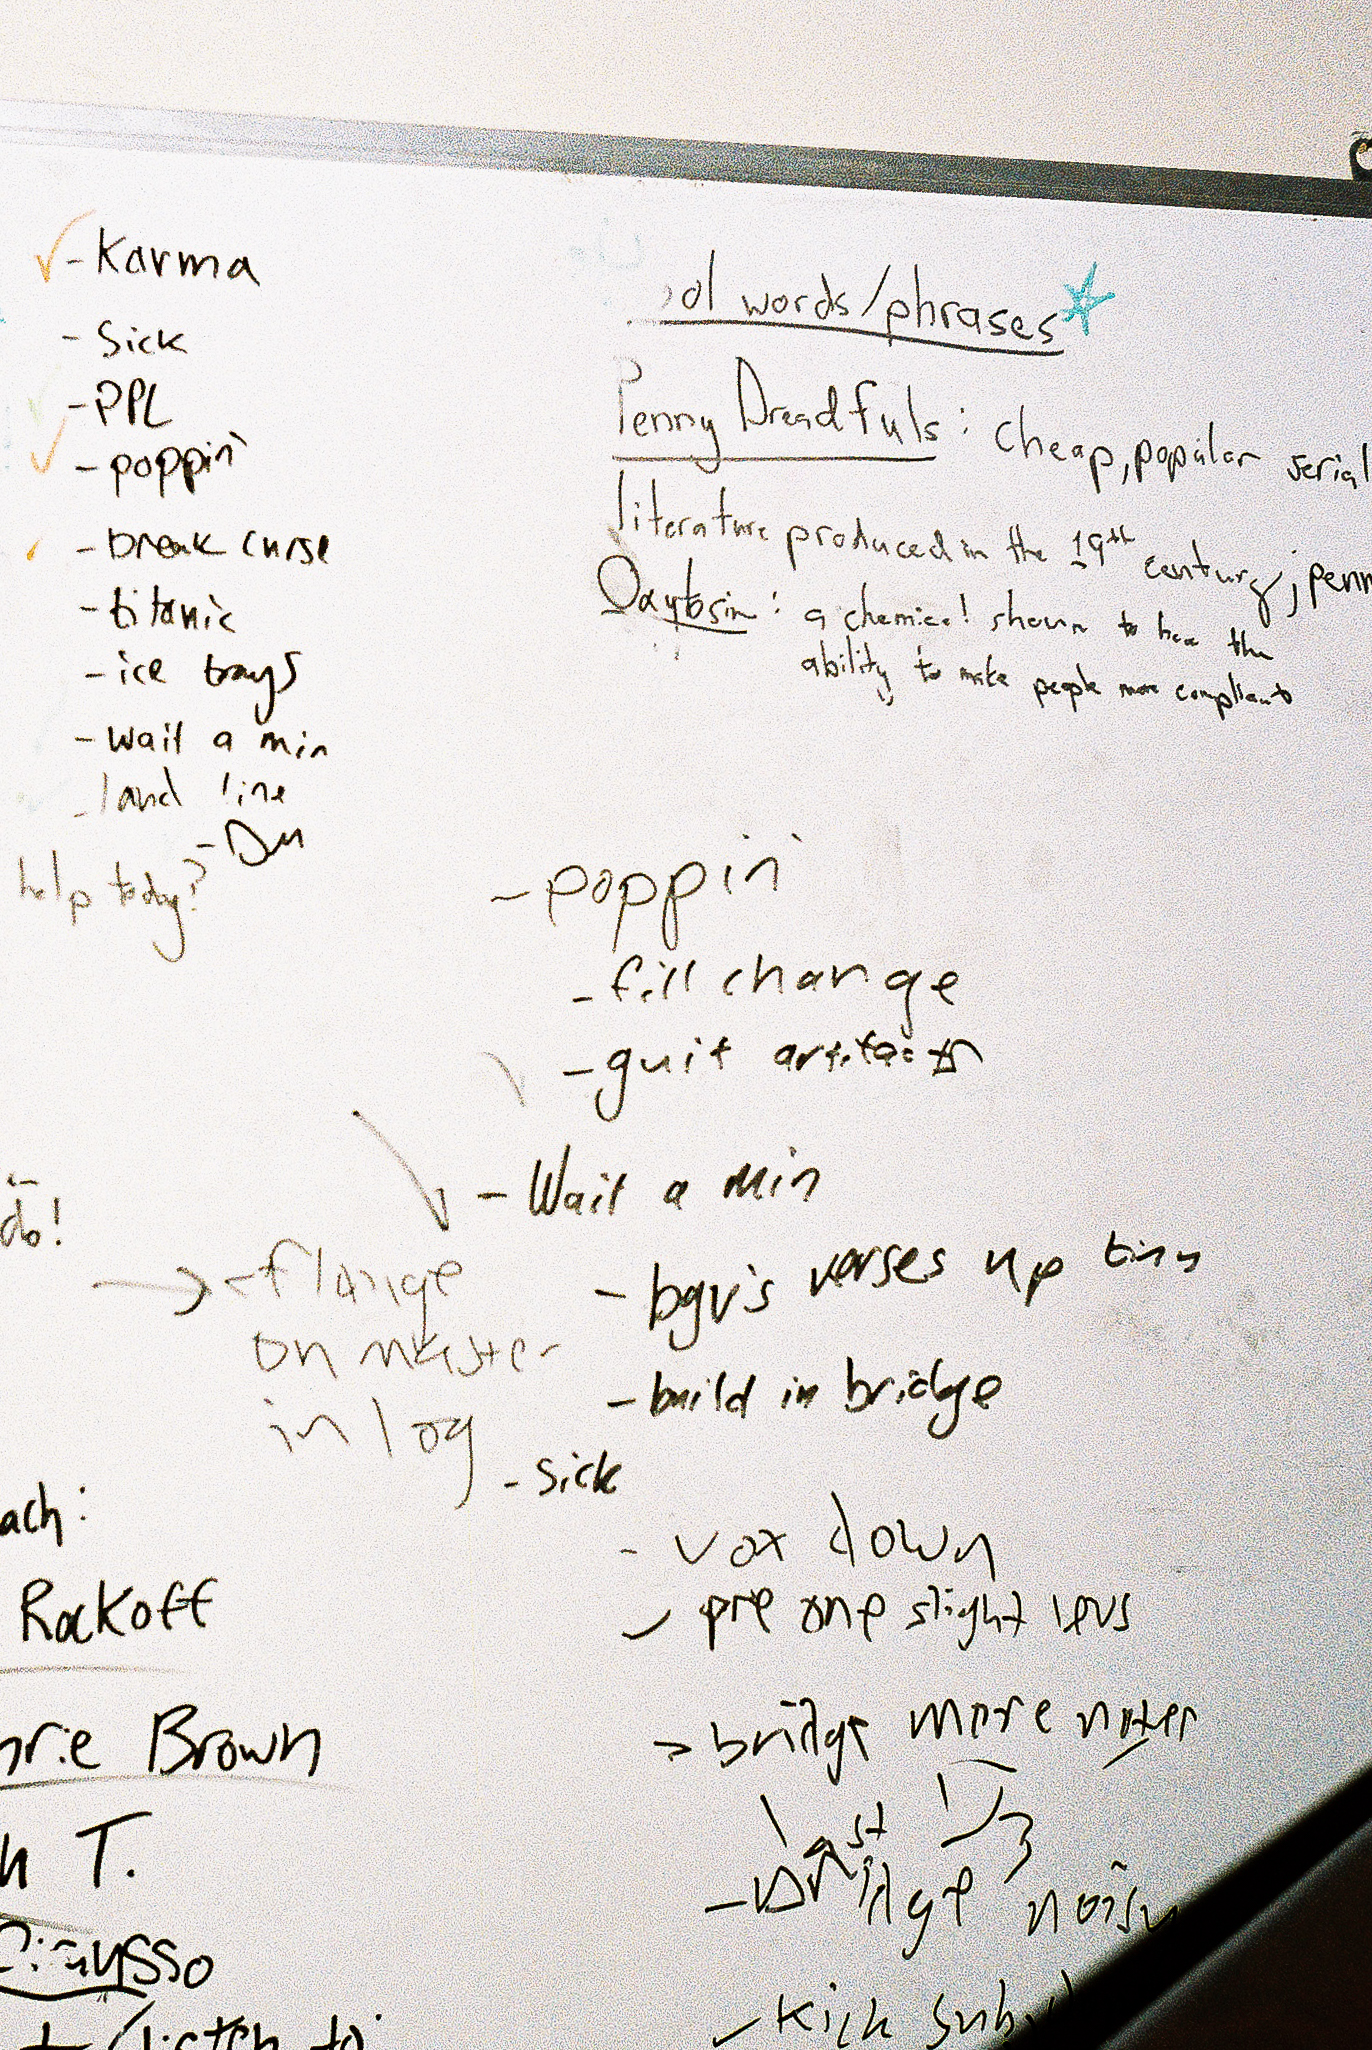 - Karma
- Sick
- PPL
- poppin'
- break curse
- titanic
- ice trays
- wait a min
- land line
- Du
help today?
ol words/phrases
Penny Dreadfuls: cheap, popular serial
literature produced in the 19th century; penn
: a chemical shown to have the
ability to make people more compliant
- poppin'
- fill change
- guit artifacts
- Wait a min
- bgv's verses up tiny
- build in bridge
- flange
on master
in log
- sick
- vox down
- pre one slight less
- bridge more notes
last 1/3
- bridge noisy
- Kick sub
do!
ach:
Rockoff
rie Brown
h T.
listen to